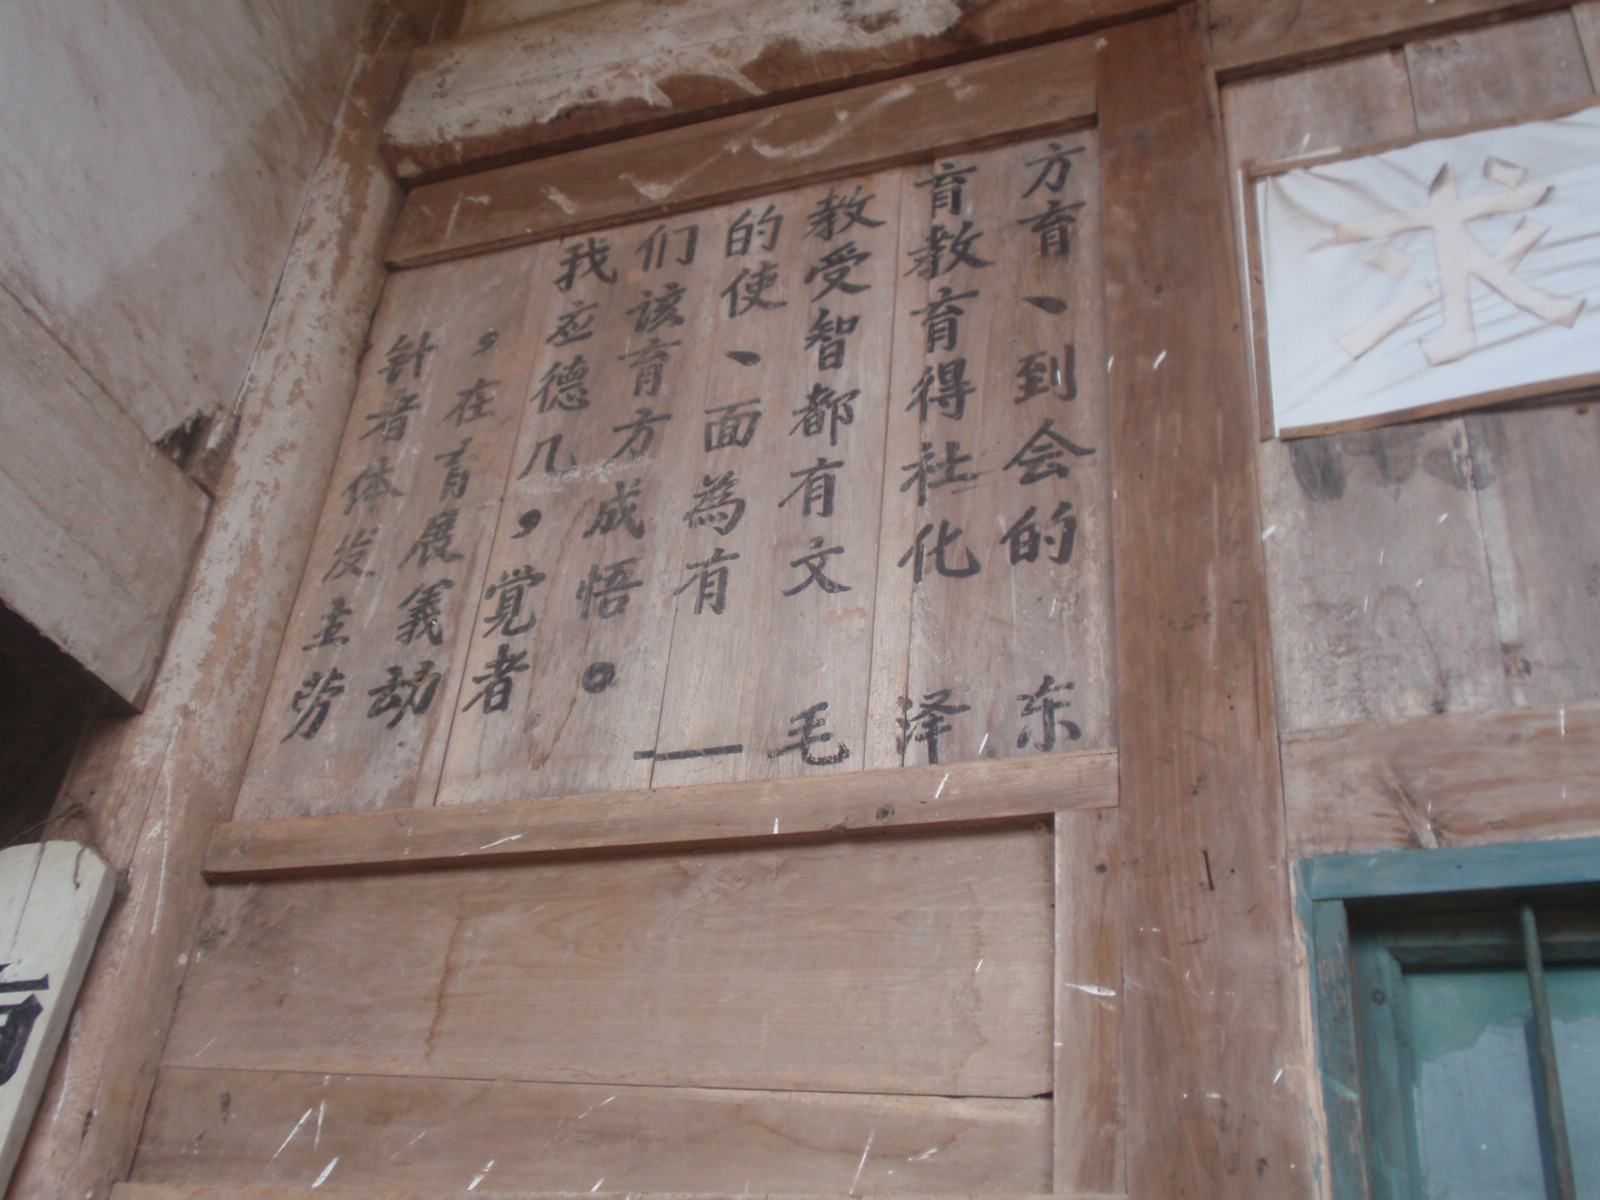 我们的教育方
针，应该使受教育
者在德育、智育、
体育几方面都得到
发展，成為有社会
主義覚悟有文化的
劳动者。
—毛泽东
求